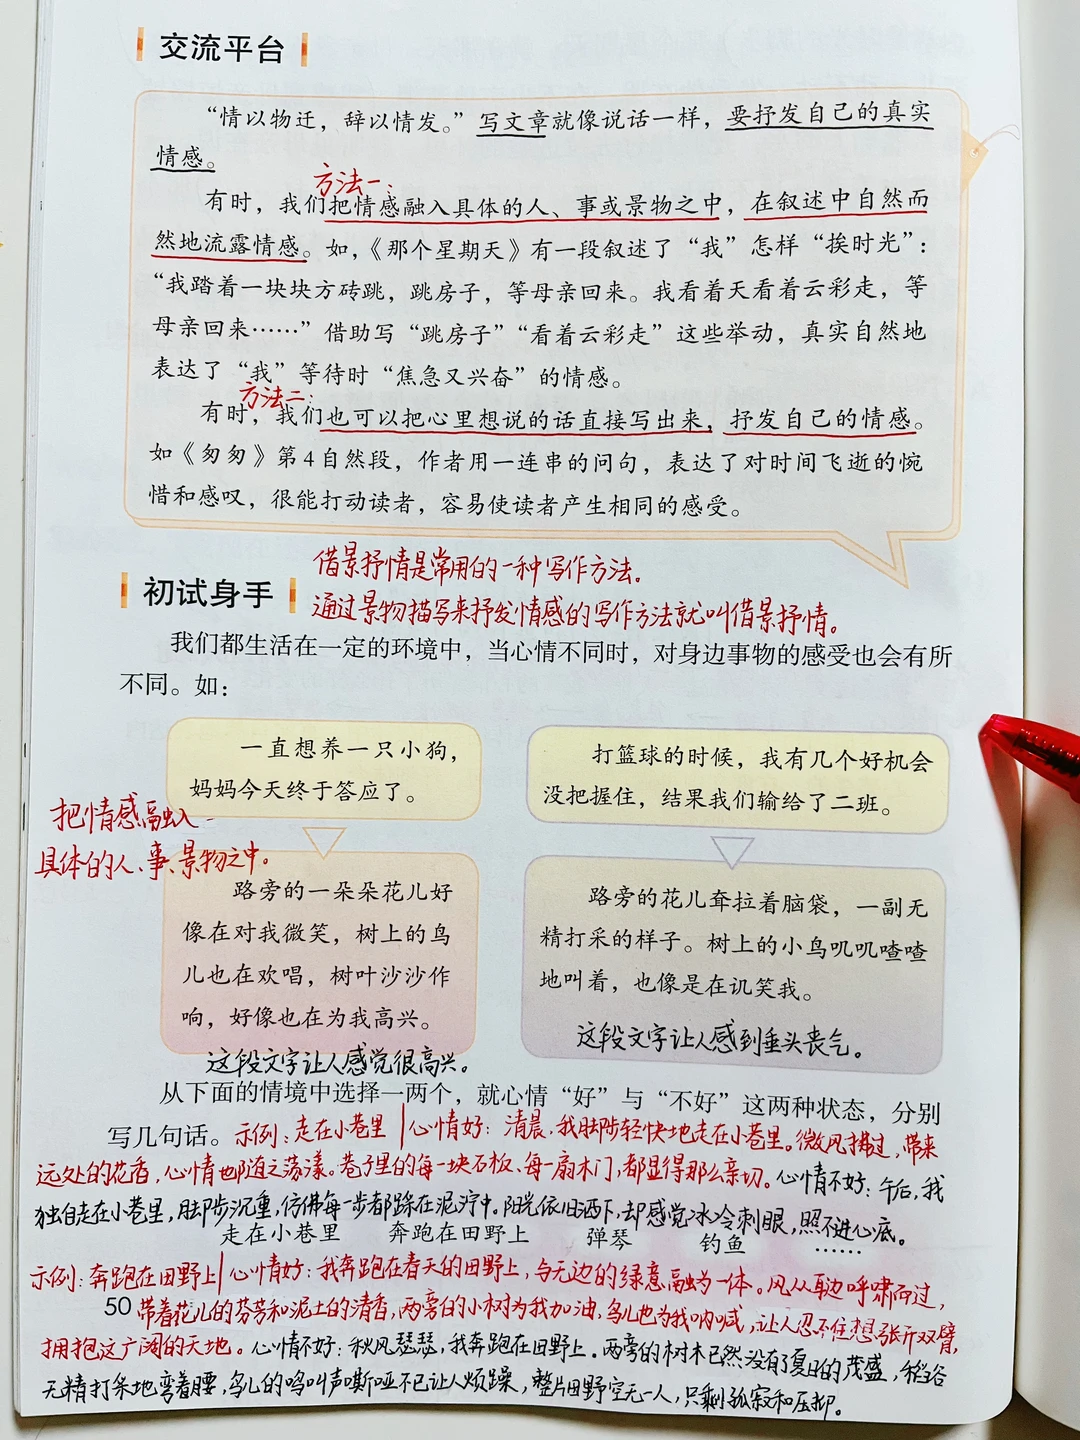 交流平台
“情以物迁，辞以情发。”写文章就像说话一样，要抒发自己的真实
情感。
方法一：
有时，我们把情感融入具体的人、事或景物之中，在叙述中自然而
然地流露情感。如，《那个星期天》有一段叙述了“我”怎样“挨时光”：
“我踏着一块块方砖跳，跳房子，等母亲回来。我看着天看着云彩走，等
母亲回来……”借助写“跳房子”“看着云彩走”这些举动，真实自然地
表达了“我”等待时“焦急又兴奋”的情感。
方法二：
有时，我们也可以把心里想说的话直接写出来，抒发自己的情感。
如《匆匆》第4自然段，作者用一连串的问句，表达了对时间飞逝的惋
惜和感叹，很能打动读者，容易使读者产生相同的感受。
借景抒情是常用的一种写作方法。
初试身手
通过景物描写来抒发情感的写作方法就叫借景抒情。
我们都生活在一定的环境中，当心情不同时，对身边事物的感受也会有所
不同。如：
一直想养一只小狗，
妈妈今天终于答应了。
打篮球的时候，我有几个好机会
没把握住，结果我们输给了二班。
把情感融入
具体的人、事、景物之中。
路旁的一朵朵花儿好
像在对我微笑，树上的鸟
儿也在欢唱，树叶沙沙作
响，好像也在为我高兴。
路旁的花儿耷拉着脑袋，一副无
精打采的样子。树上的小鸟叽叽喳喳
地叫着，也像是在讥笑我。
这段文字让人感觉很高兴。
这段文字让人感到垂头丧气。
从下面的情境中选择一两个，就心情“好”与“不好”这两种状态，分别
写几句话。示例：走在小巷里|心情好：清晨，我脚步轻快地走在小巷里。微风拂过，带来
远处的花香，心情也随之荡漾。巷子里的每一块石板、每一扇木门，都显得那么亲切。心情不好：午后，我
独自走在小巷里，脚步沉重，仿佛每一步都踩在泥泞中。阳光依旧洒下，却感觉冰冷刺眼，照不进心底。
走在小巷里 奔跑在田野上 弹琴 钓鱼 ……
示例：奔跑在田野上|心情好：我奔跑在春天的田野上，与无边的绿意融为一体。风从耳边呼啸而过，
50 带着花儿的芬芳和泥土的清香，两旁的小树为我加油，鸟儿也为我呐喊，让人忍不住想张开双臂，
拥抱这广阔的天地。心情不好：秋风瑟瑟，我奔跑在田野上。两旁的树木已然没有了夏日的茂盛，稻谷
无精打采地弯着腰，鸟儿的鸣叫声嘶哑不已让人烦躁，整片田野空无一人，只剩孤寂和压抑。